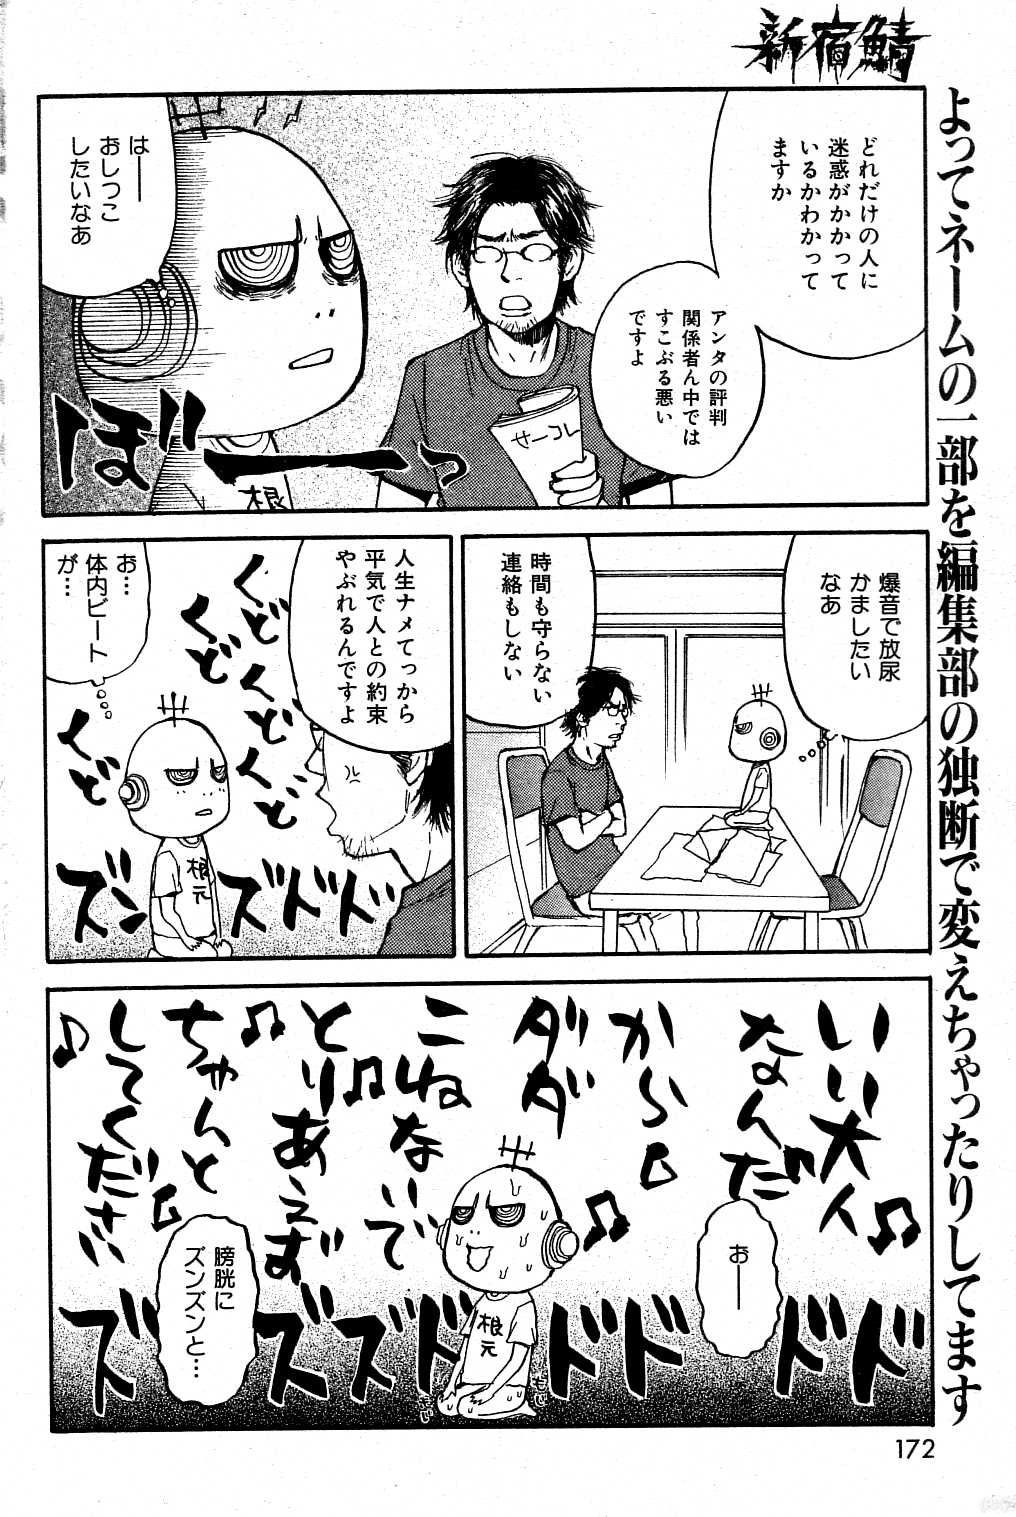 新宿鯖
よってネームの一部を編集部の独断で変えちゃったりしてます
どれだけの人に
迷惑がかかって
いるかわかって
ますか
アンタの評判
関係者ん中では
すこぶる悪い
ですよ
サーコレ
はー
おしっこ
したいなあ
根
ぼーっ
爆音で放尿
かましたい
なあ
時間も守らない
連絡もしない
人生ナメてっから
平気で人との約束
やぶれるんですよ
くどくどくどくど
くどくど
くどくど
お…
体内ビート
が…
根元
ズドドド
ズン
いい大人♪
なんだ
から
ダダ
こねないで
とりあえず♪
ちゃんと♪
してください♪
おー
膀胱に
ズンズンと…
根元
もじ
もじ
ドドドドドズズズズ
172